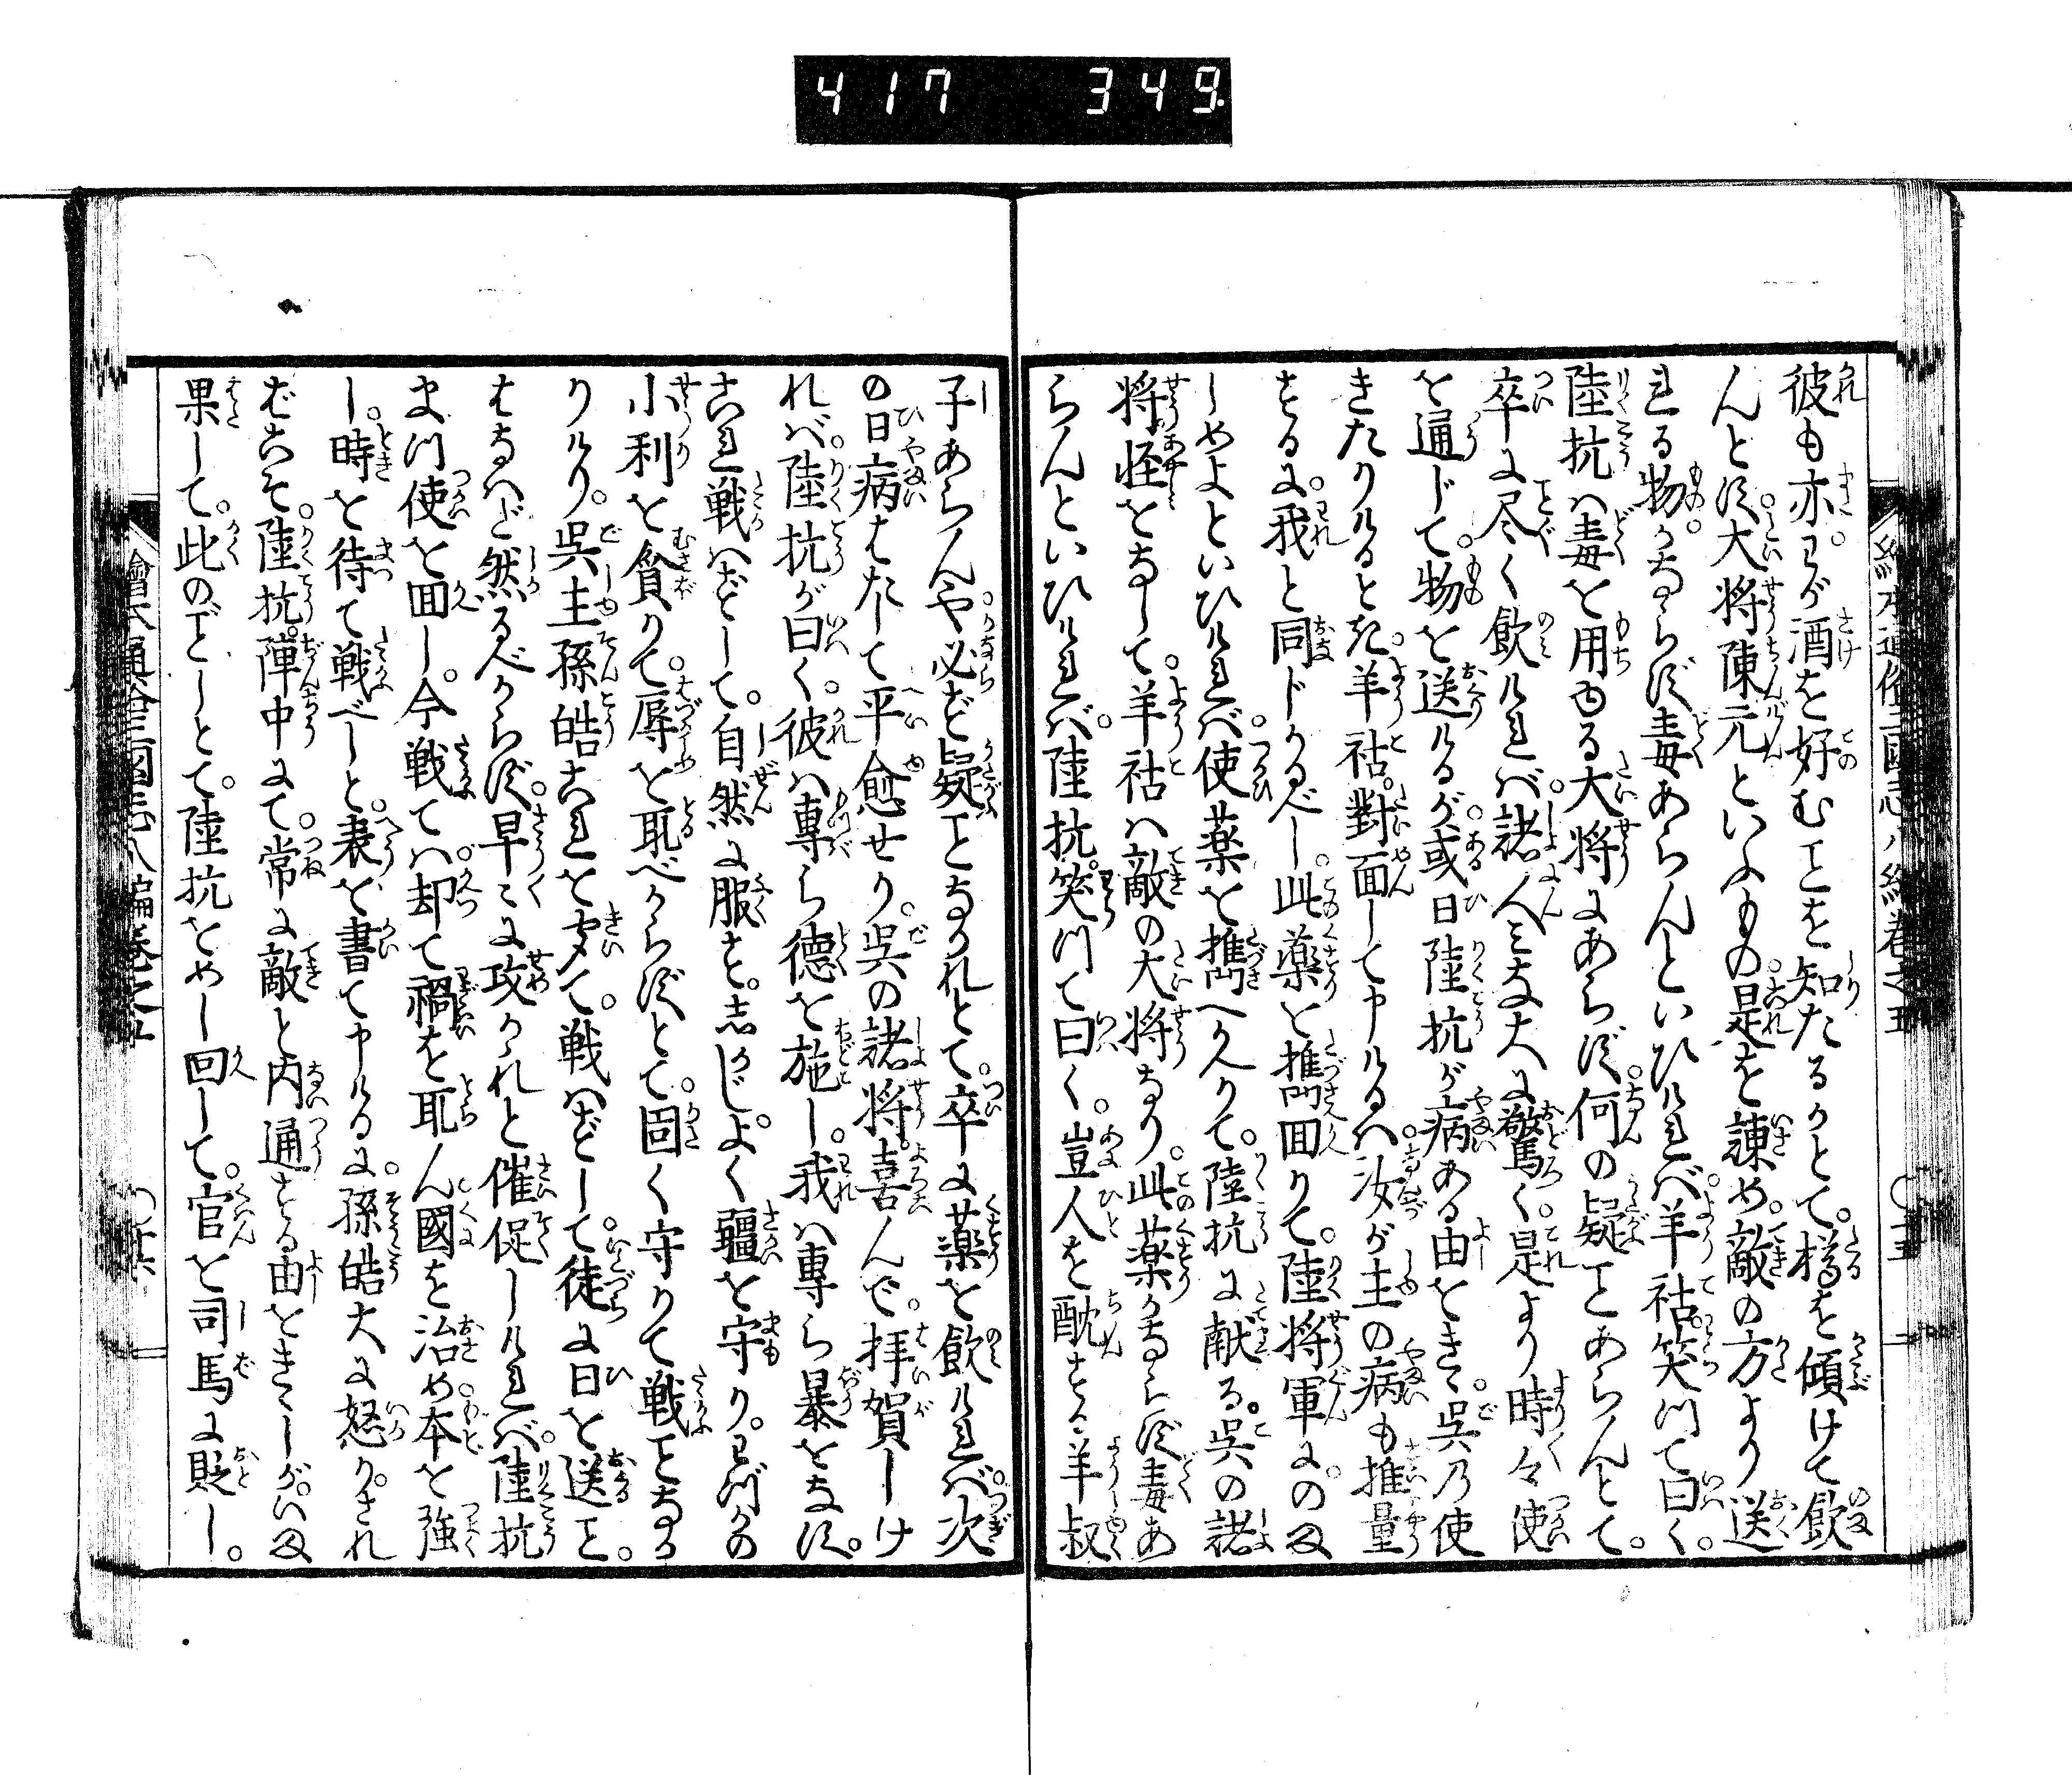 417 349
彼も亦。わが酒を好むことを知たるかとて。樽を傾けて飲
んとす。大将陳元といふもの。是を諫め。敵の方より送
れる物。かならず毒あらんといひければ。羊祜。笑つて曰く。
陸抗は毒を用ゆる大将にあらず。何の疑ことあらんとて。
卒に尽く飲ければ。諸人みな大に驚く。是より時々使
を通じて。物を送けるが。或日陸抗が病ある由をきゝ。呉乃使
きたりけるとき。羊祜。對面して申けるは。汝が主の病も推量
するに。我と同じかるべし。此薬を携回りて。陸将軍にのま
しめよといひければ。使薬を携へかへりて。陸抗に献る。呉の諸
将。怪をなして。羊祜は敵の大将なり。此薬かならず毒あ
らんといひければ。陸抗。笑つて曰く。豈人を酖する羊叔
子あらんや必ず疑ことなかれとて。卒に薬を飲ければ。次
の日病はたして平愈せり。呉の諸将。喜んで。拝賀しけ
れば。陸抗が曰く。彼は専ら徳を施し。我は専ら暴をなす。
これ戦はずして。自然に服さる。志かじ。よく疆を守り。わづかの
小利を貪りて。辱を耻べからずとて。固く守りて戦ことなか
りけり。呉主孫皓これを聞て。戦はずして。徒に日を送こと。
はなはだ然るべからず。早々に攻かゝれと催促しければ。陸抗
まづ使を回し。今戦ては。却て禍を耻ん國を治め。本を強
し。時を待て戦べしと。表を書て申けるに。孫皓大に怒り。され
ばこそ。陸抗。陣中にて。常に敵と内通する由をきゝしが。いま
果して。此のごとしとて。陸抗をめし回して。官を司馬に貶し。
繪本通俗三國志八編巻之五